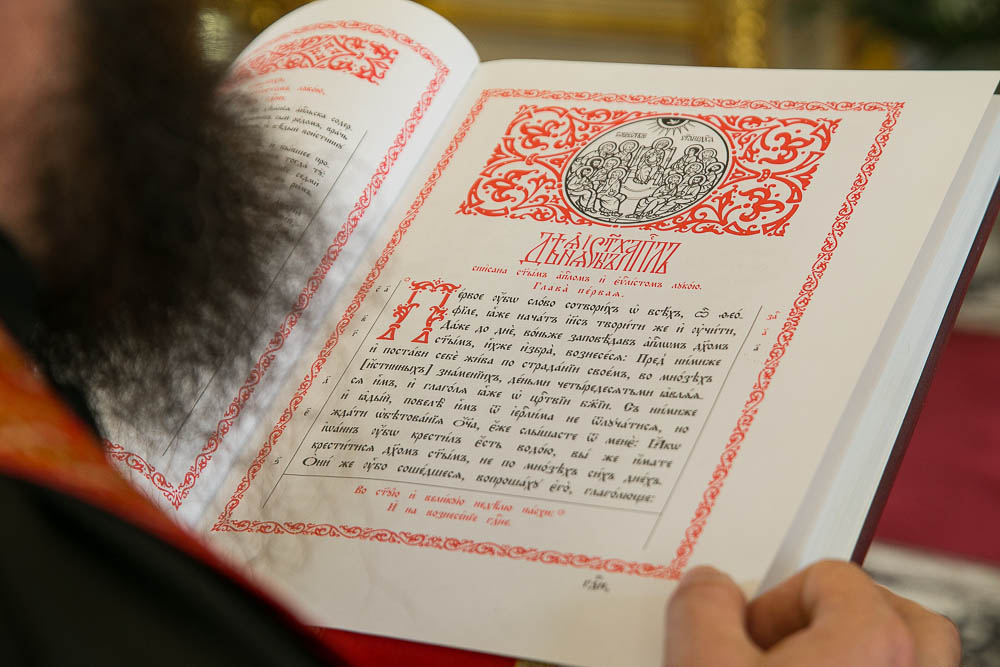 Дѣѧ̑нїѧ ст҃ы́хъ а҆пⷭ҇лъ
спи́сана ст҃ы́мъ а҆пⷭ҇ломъ и҆ є҆ѵⷢ҇лі́стомъ лꙋко́ю.
Глава̀ пе́рваѧ.
Пе́рвое ᲂу҆́бѡ сло́во сотвори́хъ ѡ҆ всѣ́хъ, ѽ ѳео́-
фїле, ꙗ҆̀же нача́тъ і҆и҃съ твори́ти же и҆ ᲂу҆чи́ти,
Да́же до днѐ, во́ньже заповѣ́давъ а҆пⷭ҇лѡмъ дх҃омъ
ст҃ы́мъ, и҆̀хже и҆збра̀, вознесе́сѧ: Пред̾ ни́миже
и҆ поста́ви себѐ жи́ва по страда́нїи свое́мъ, во мно́зѣхъ
[и҆́стинныхъ] зна́менїихъ, де́ньми четы́редесѧтьми ꙗ҆влѧ́ѧ-
сѧ и҆̀мъ, и҆ глаго́лѧ ꙗ҆̀же ѡ҆ црⷭ҇твїи бж҃їи. Съ ни́миже
и҆ ꙗ҆ды́й, повелѣ̀ и҆̀мъ ѿ і҆ерⷭ҇ли́ма не ѿлꙋча́тисѧ, но
жда́ти ѡ҆бѣтова́нїѧ ѻ҆́ч҃а, є҆́же слы́шасте ѿ менѐ: Ꙗ҆́кѡ
і҆ѡа́ннъ ᲂу҆́бѡ крести́лъ є҆́сть водо́ю, вы́ же и҆́мате
крести́тисѧ дх҃омъ ст҃ы́мъ, не по мно́зѣхъ си́хъ дне́хъ.
Ѻ҆ни́ же ᲂу҆́бо соше́дшесѧ, вопроша́хꙋ є҆го̀, глаго́люще:
Во ст҃ꙋ́ю и҆ вели́кꙋю недѣ́лю па́схи:
И҆ на вознесе́нїе гдⷭ҇не.
гдⷭ҇и,